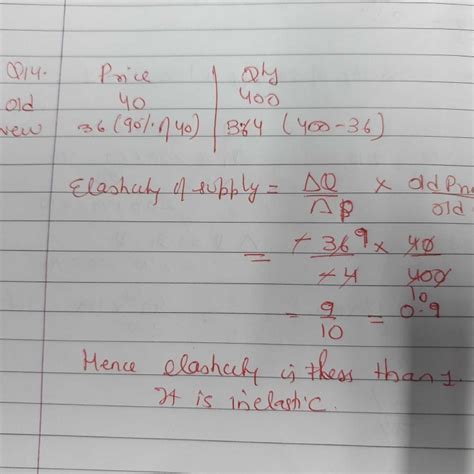 Q14. Price Qty
old 40 400
new 36 (90% of 40) 364 (400-36)
Elasticity of supply = ΔQ/Δp × old Pri / old
= -36 9/-4 × 40/400 10
= 9/10 = 0.9
Hence elasticity is less than 1.
It is inelastic.